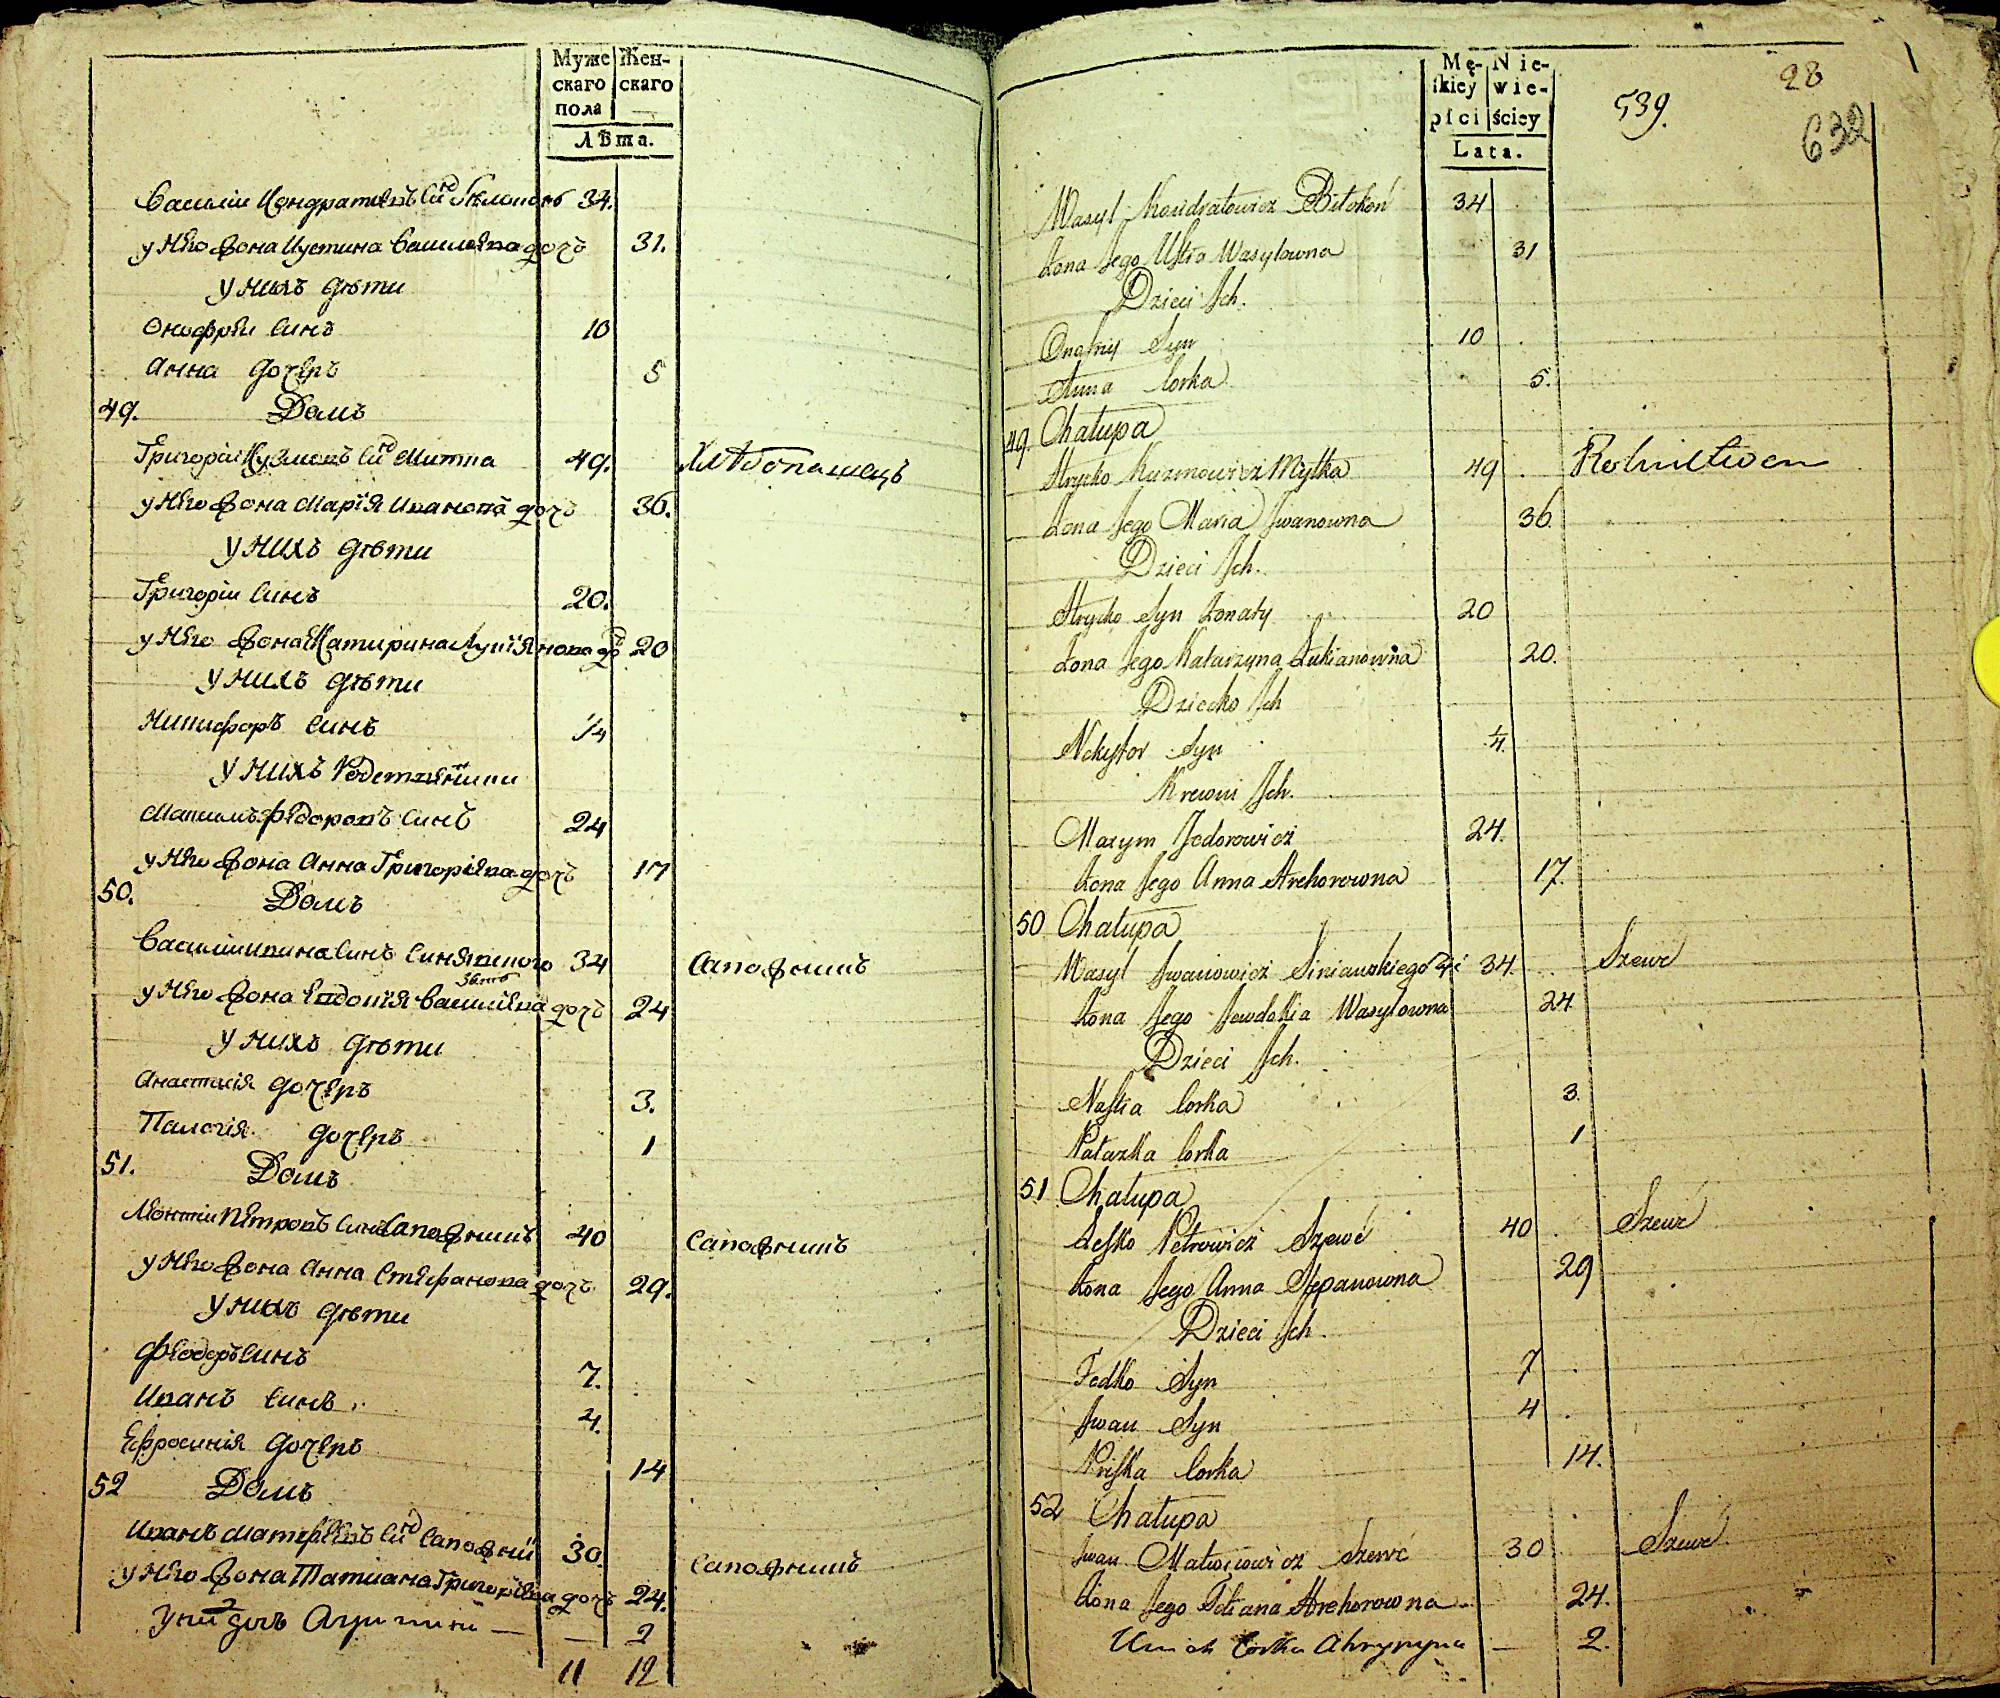 Муже Жен-
скаго скаго
пола
Лѣта.
Василій Кондратовъ Синъ Бѣлоконь 34.
у Него Жона Иустина Василіева дочь 31.
у Нихъ Дѣти
Онофрѣи Синъ 10
Анна Дочерь 5
49. Домъ
Григорій Кузмовъ Синъ Митка 49. Хлѣбопашецъ
у Него Жона Марія Иванова дочь 36.
у Нихъ Дѣти
Григоріи Синъ 20.
у Него Жона Катирина Лукіянова до 20
у Нихъ Дѣти
Никифоръ Синъ 1/4
у Нихъ
Максимъ Федоровъ Синъ 24
у Него Жона Анна Григоріева дочь 17
50. Домъ
Василіи Ивана Синъ Синявского 34 Сапожникъ
зять
у Него Жона Евдокія Василіева дочь 24
у Нихъ Дѣти
Анастасія Дочерь 3.
Палагія Дочерь 1
51. Домъ
Леонтіи Петровъ Синъ Сапожникъ 40 Сапожникъ
у Него Жона Анна Стефанова дочь 29.
у Нихъ Дѣти
Феодоръ Синъ 7.
Иванъ Синъ. 4.
Ефросинія Дочерь 14
52 Домъ
Иванъ Матвѣевъ Синъ 30. Сапожникъ
у Него Жона Татиана Григоріева дочь 24.
дочь — — 2
11 12
Mę- Nie-
skiey wie-
płci ściey
Lata.
539.
28
632
Wasyl Kondratowicz Biłokoń 34
Żona Jego Ustia Wasylowna 31
Dzieci Ich.
Onofry Syn 10
Anna Corka 5.
49 Chałupa
Hrycko Kuzmowicz Mytka 49 Rolnictwem
Żona Jego Maria Iwanowna 36.
Dzieci Ich.
Hrycko Syn Żonaty 20
Żona Jego Katarzyna Łukianowna 20.
Dziecko Ich
Nekyfor Syn 1/4.
Krewni Ich.
Maxym Fedorowicz 24.
Żona Jego Anna Hrehorowna 17.
50 Chałupa
Wasyl Iwanowicz Siniawskiego Zięć 34. Szewc
Żona Jego Jewdokia Wasylowna 24
Dzieci Ich.
Nastia Corka 3.
Pałazka Corka 1
51 Chałupa
Łesko Petrowicz Szewć 40 Szewć
Żona Jego Anna Stepanowna 29
Dzieci Ich.
Fedko Syn 7
Iwan Syn 4
Priska Corka 14.
52 Chałupa
Iwan Matwijowicz Szewć 30 Szewć
Żona Jego Tetiana Hrehorowna 24.
U nich Corka Ahrypyna — 2.